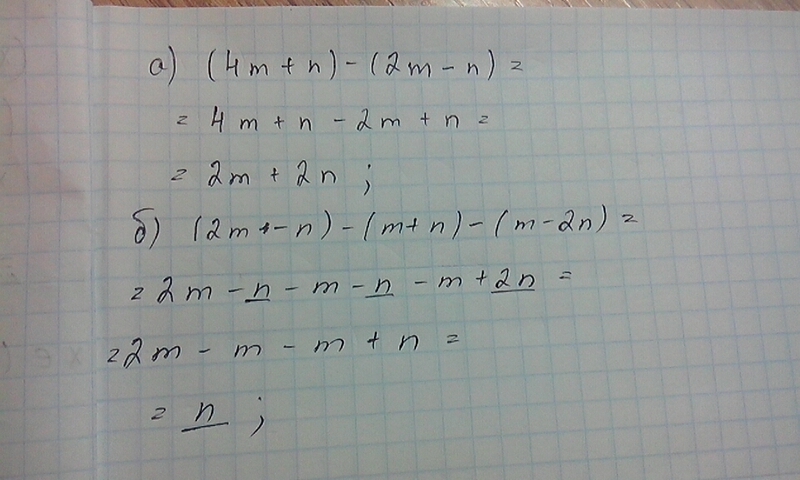 а) (4m + n) - (2m - n) =
= 4m + n - 2m + n =
= 2m + 2n ;
б) (2m - n) - (m + n) - (m - 2n) =
= 2m - n - m - n - m + 2n =
= 2m - m - m + n =
= n ;